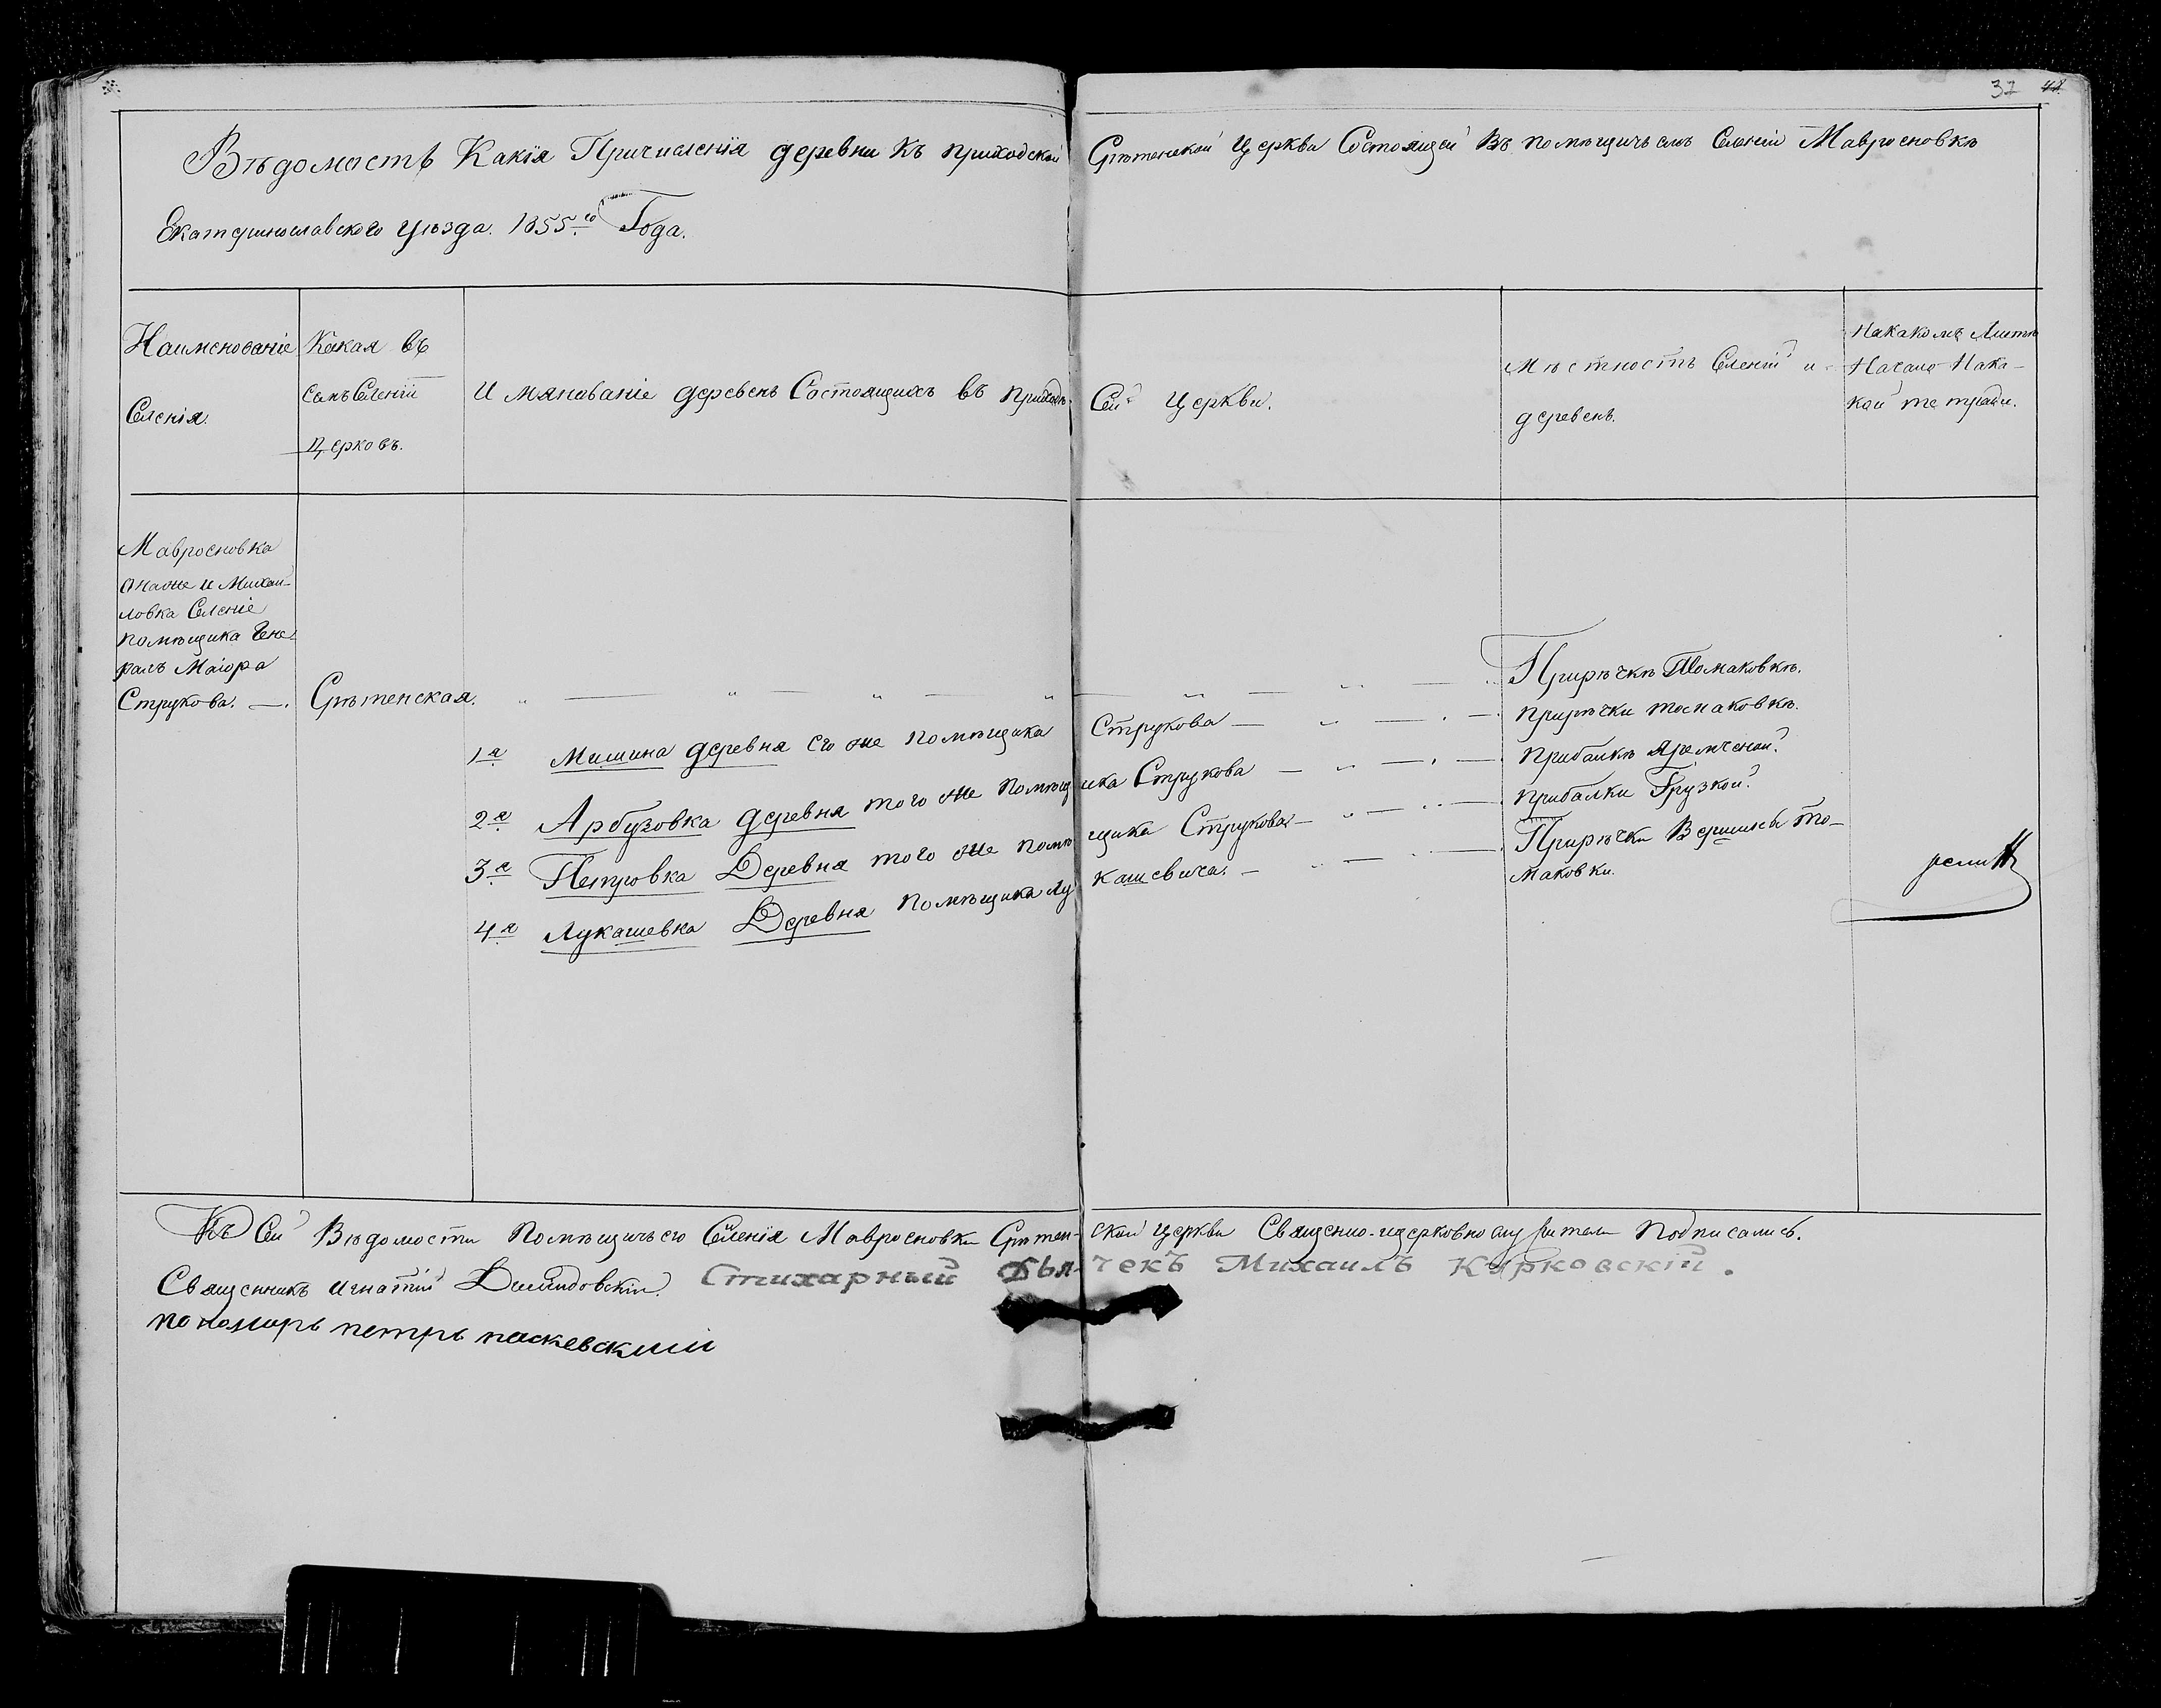 37 48
Вѣдомость Какія Причисления деревни Къ приходской Срѣтенской Церкви Состоящей Въ помѣщичьемъ Селеніи Мавросновкѣ
Екатеринославского уѣзда. 1855го Года.
Наименованіе Селенія.
Какая въ семъ Селеніи Церковь.
Имянованіе деревень Состоящихъ въ приходѣ Сей Церкви.
Мѣстность Селеній и деревень.
На какомъ Листѣ Начало На ка-
кой тетради.
Мавросновка
Она же и Михай-
ловка Селеніе
помѣщика Гене-
ралъ Маіора
Струкова. —.
Срѣтенская.
При рѣчкѣ Томаковкѣ.
1я Мишина деревня его же помѣщика Струкова — при рѣчки томаковкѣ.
2я Арбузовка деревня того же помѣщика Струкова — при балкѣ Яремчской.
3я Петровка Деревня того же помѣщика Струкова — при балки Грузкой.
4я Лукашевка Деревня помѣщика Лукашевича. — При рѣчки Вершины То-
маковки.
Къ Сей Вѣдомости Помѣщичьего Селенія Мавросновки Срѣтен-ской церкви Священно-церковнослужители Подписались.
Священникъ Игнатій Стихарный Дьячекъ Михаилъ Курковскій.
пономарь петръ паскевский